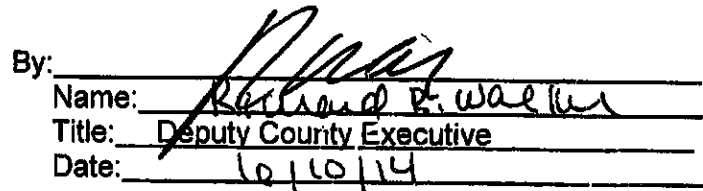 By:
Name: Richard R. Walker
Title: Deputy County Executive
Date: 10/10/14